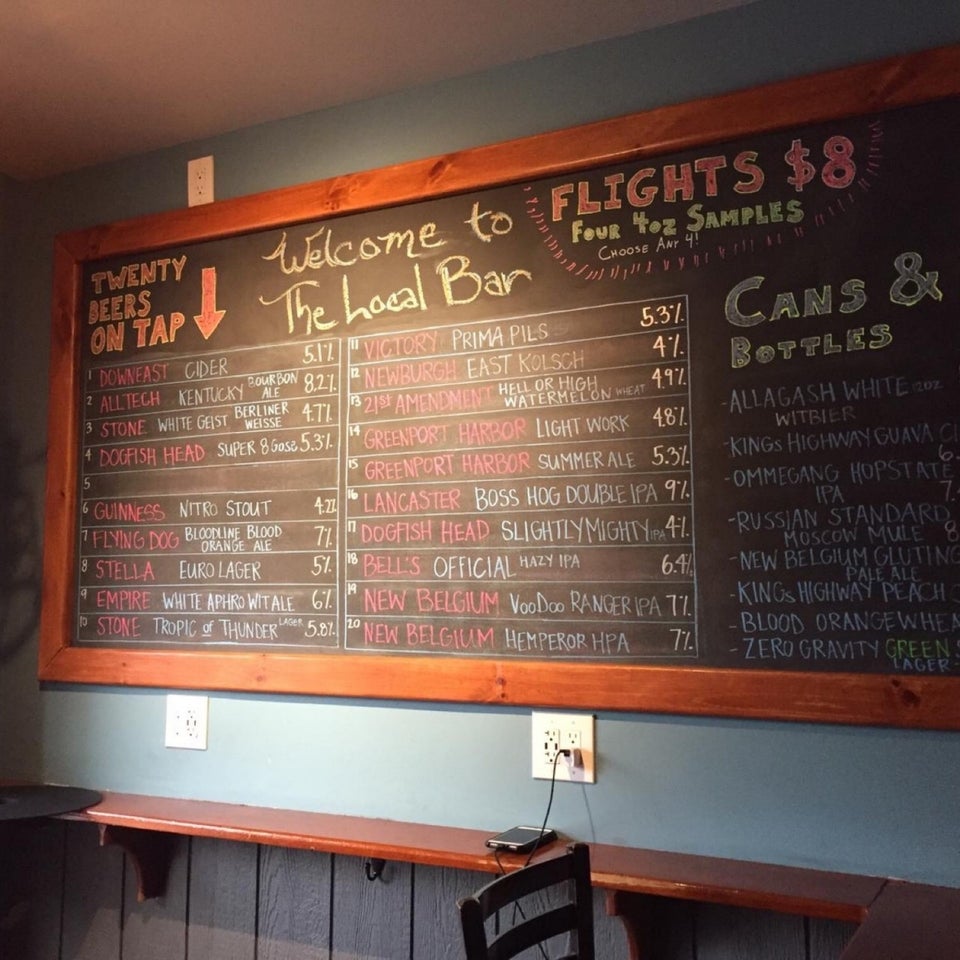 TWENTY
BEERS
ON TAP
Welcome to
The Local Bar
FLIGHTS $8
FOUR 4oz SAMPLES
CHOOSE ANY 4!
1 DOWNEAST CIDER 5.1%
2 ALLTECH KENTUCKY BOURBON ALE 8.2%
3 STONE WHITE GEIST BERLINER WEISSE 4.7%
4 DOGFISH HEAD SUPER 8 Gose 5.3%
5
6 GUINNESS NITRO STOUT 4.2%
7 FLYING DOG BLOODLINE BLOOD ORANGE ALE 7%
8 STELLA EURO LAGER 5%
9 EMPIRE WHITE APHRO WIT ALE 6%
10 STONE TROPIC of THUNDER LAGER 5.8%
11 VICTORY PRIMA PILS 5.3%
12 NEWBURGH EAST KOLSCH 4%
13 21st AMENDMENT HELL OR HIGH WATERMELON WHEAT 4.9%
14 GREENPORT HARBOR LIGHT WORK 4.8%
15 GREENPORT HARBOR SUMMER ALE 5.3%
16 LANCASTER BOSS HOG DOUBLE IPA 9%
17 DOGFISH HEAD SLIGHTLY MIGHTY IPA 4%
18 BELL'S OFFICIAL HAZY IPA 6.4%
19 NEW BELGIUM VooDoo RANGER IPA 7%
20 NEW BELGIUM HEMPEROR HPA 7%
CANS &
BOTTLES
- ALLAGASH WHITE 12oz
WITBIER
- KINGS HIGHWAY GUAVA
- OMMEGANG HOPSTATE
IPA
- RUSSIAN STANDARD
MOSCOW MULE
- NEW BELGIUM GLUTINY
PALE ALE
- KINGS HIGHWAY PEACH
- BLOOD ORANGE WHEA
- ZERO GRAVITY GREEN
LAGER